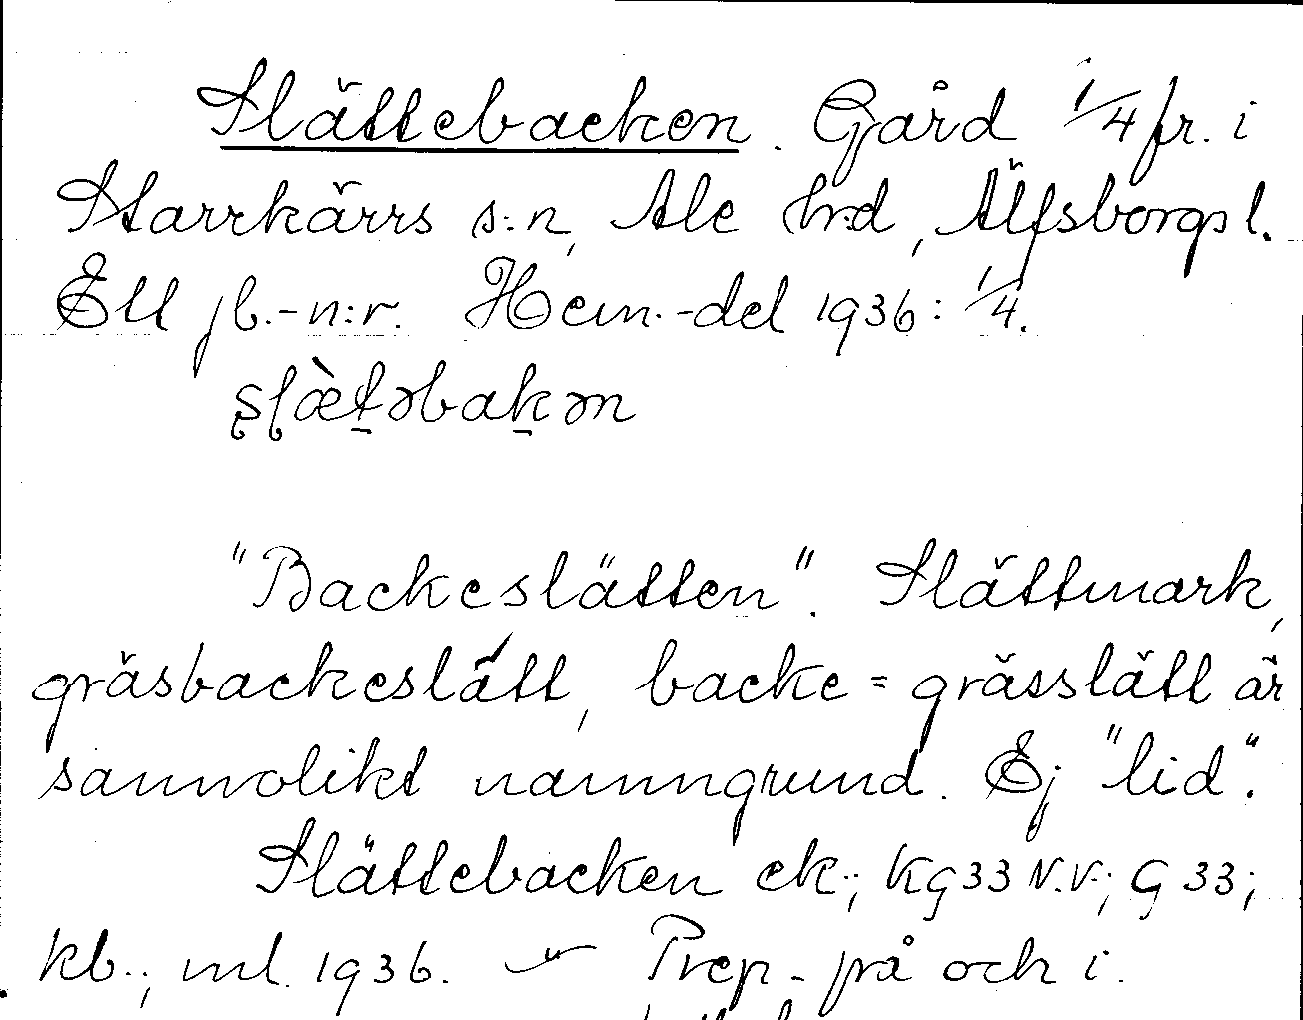 Slättebacken. Gård 1/4 fr. i
Starrkärrs s:n, Ale hrd, Älfsborgs l.
Ett jb.-n:r. Hem.-del 1936: 1/4.
ʂɭæ̀təbakən
"Backeslätten". Slättmark,
gräsbackeslätt, backe=grässlätt är
sannolikt namngrund. Ej "lid".
Slättebacken ek.; Kg 33 N.V.; G 33;
kb.; ml. 1936. Prep. på och i.